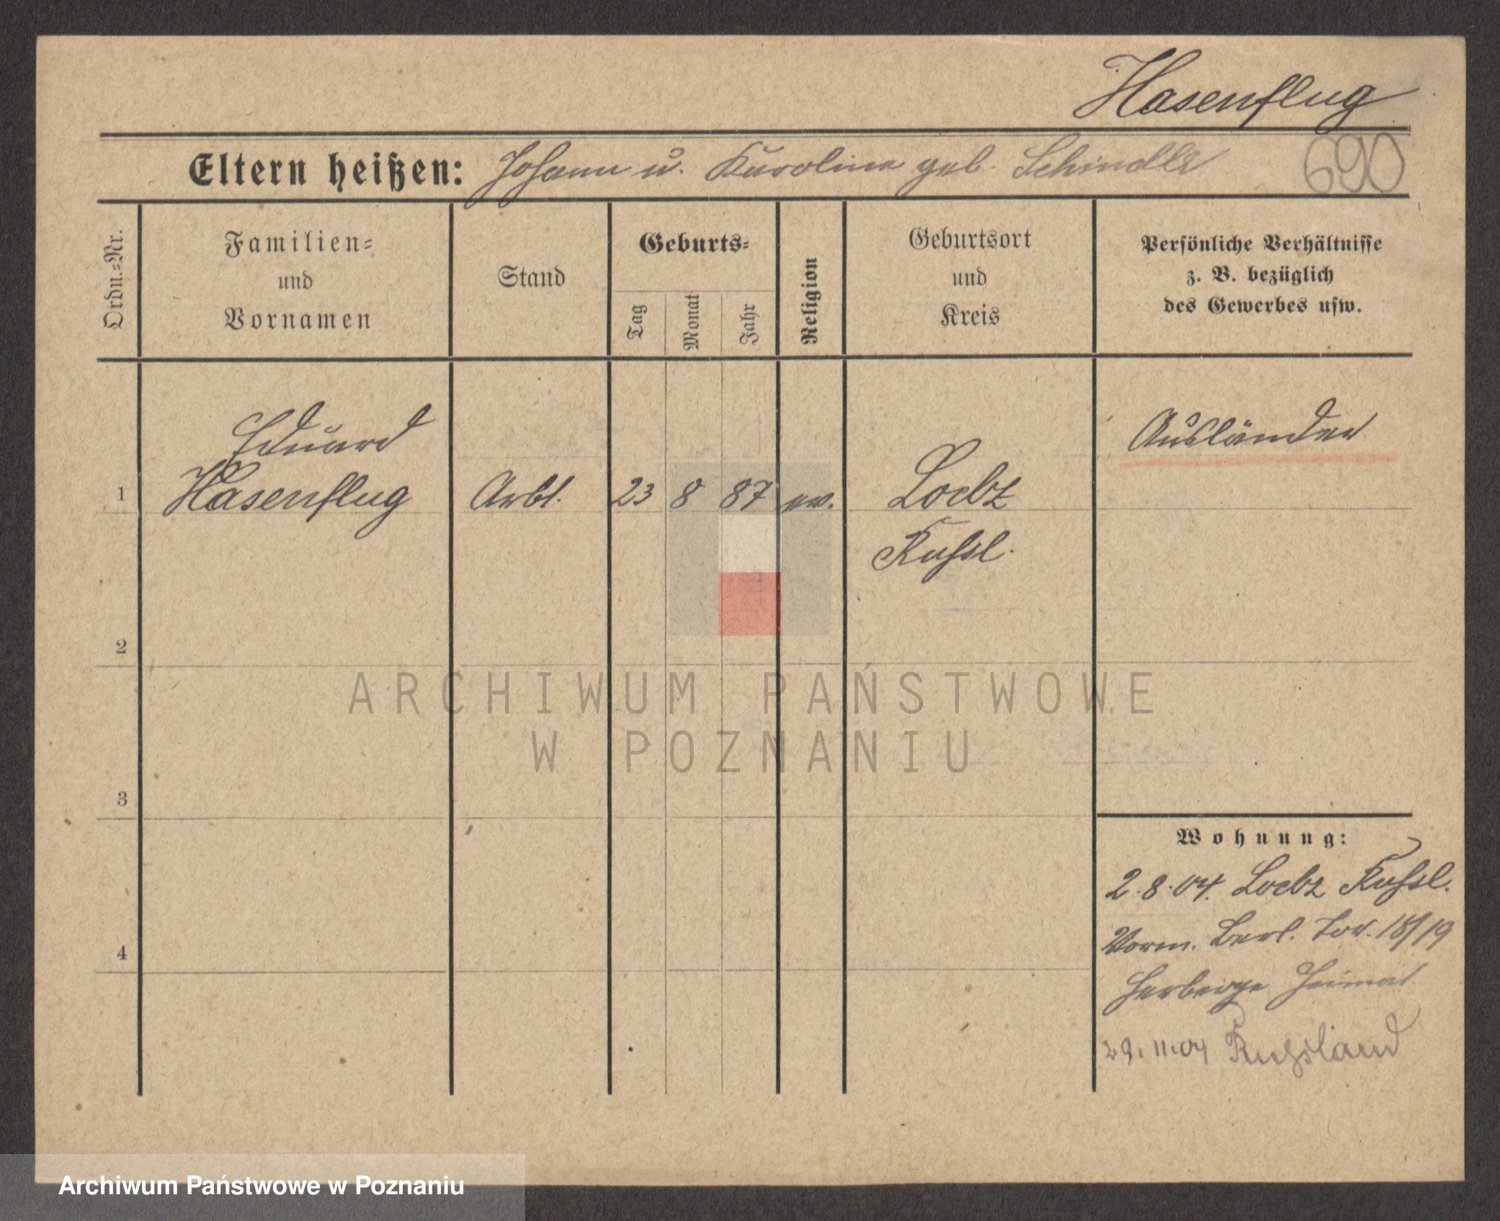 Hasenflug
Eltern heißen: Johann u. Karolina geb. Schindler
690
Ordn.-Nr.
Familien-
und
Vornamen
Stand
Geburts-
Tag
Monat
Jahr
Religion
Geburtsort
und
Kreis
Persönliche Verhältnisse
z. B. bezüglich
des Gewerbes usw.
Eduard
1 Hasenflug Arbt. 23 8 87 ev. Lodz
Russl.
Ausländer
2
3
4
Wohnung:
2.8.04. Lodz Russl.
Vorm. Berl. Tor. 18/19
Herberge Heimat
29.11.04 Russland
ARCHIWUM PAŃSTWOWE
W POZNANIU
Archiwum Państwowe w Poznaniu